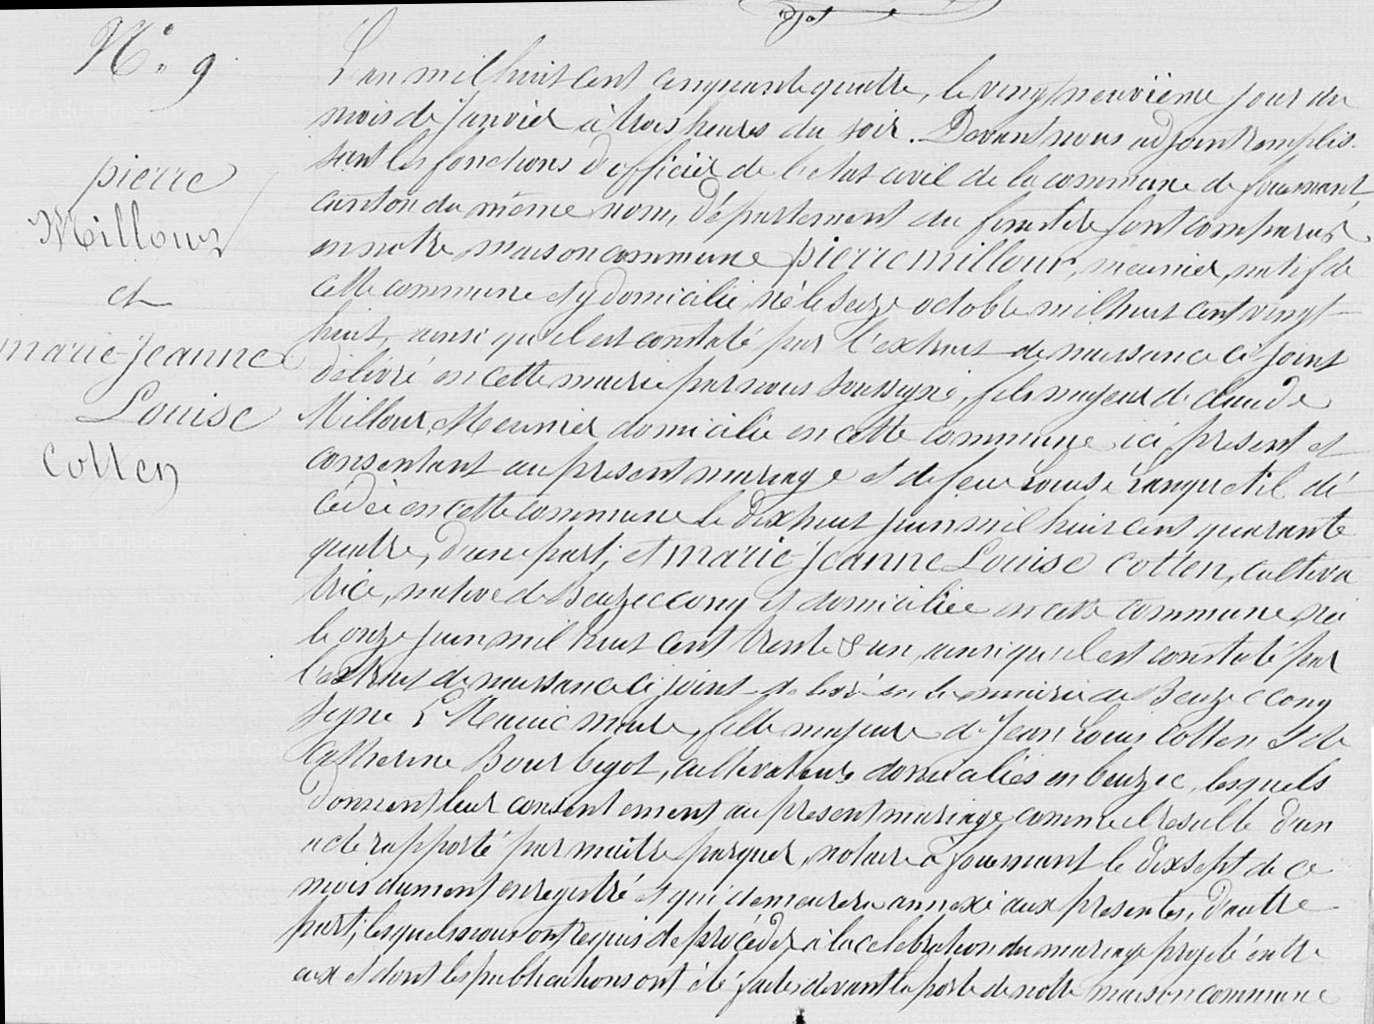 N° 9
pierre
Millour
et
marie-jeanne
Louise
Cotten
L'an mil huit cent cinquante quatre, le vingt neuvième jour du
mois de janvier à trois heures du soir. Devant nous adjoint remplis-
sant les fonctions d'officier de l'état civil de la commune de fouesnant
canton du même nom, département du finistère sont comparus
en notre maison commune pierre millour, meunier, natif de
cette commune et y domicilié, né le seize octobre mil huit cent vingt-
huit, ainsi qu'il est constaté par l'extrait de naissance ci-joint
délivré en cette mairie par nous soussigné, fils majeur de claude
Millour, Meunier domicilié en cette commune ici présent et
consentant au présent mariage et de feue louise ranquetil dé-
cédée en cette commune le dix huit juin mil huit cent quarante
quatre, d'une part; et marie-jeanne Louise cotten, cultiva
trice, native de Beuzec conq et domiciliée en cette commune née
le onze juin mil huit cent trente & un, ainsi qu'il est constaté par
l'extrait de naissance ci-joint délivré en la mairie de Beuzec conq
signé maire, fille majeure de Jean louis Cotten & de
Catherine Bourbigot, cultivateurs domiciliés en beuzec, lesquels
donnent leur consentement au présent mariage comme il résulte d'un
acte rapporté par maître parquer, notaire à fouesnant le dix sept de ce
mois dument enregistré et qui demeurera annexé aux présentes, d'autre
part; lesquels nous ont requis de procéder à la célébration du mariage projeté entre
eux et dont les publications ont été faites devant la porte de notre maison commune